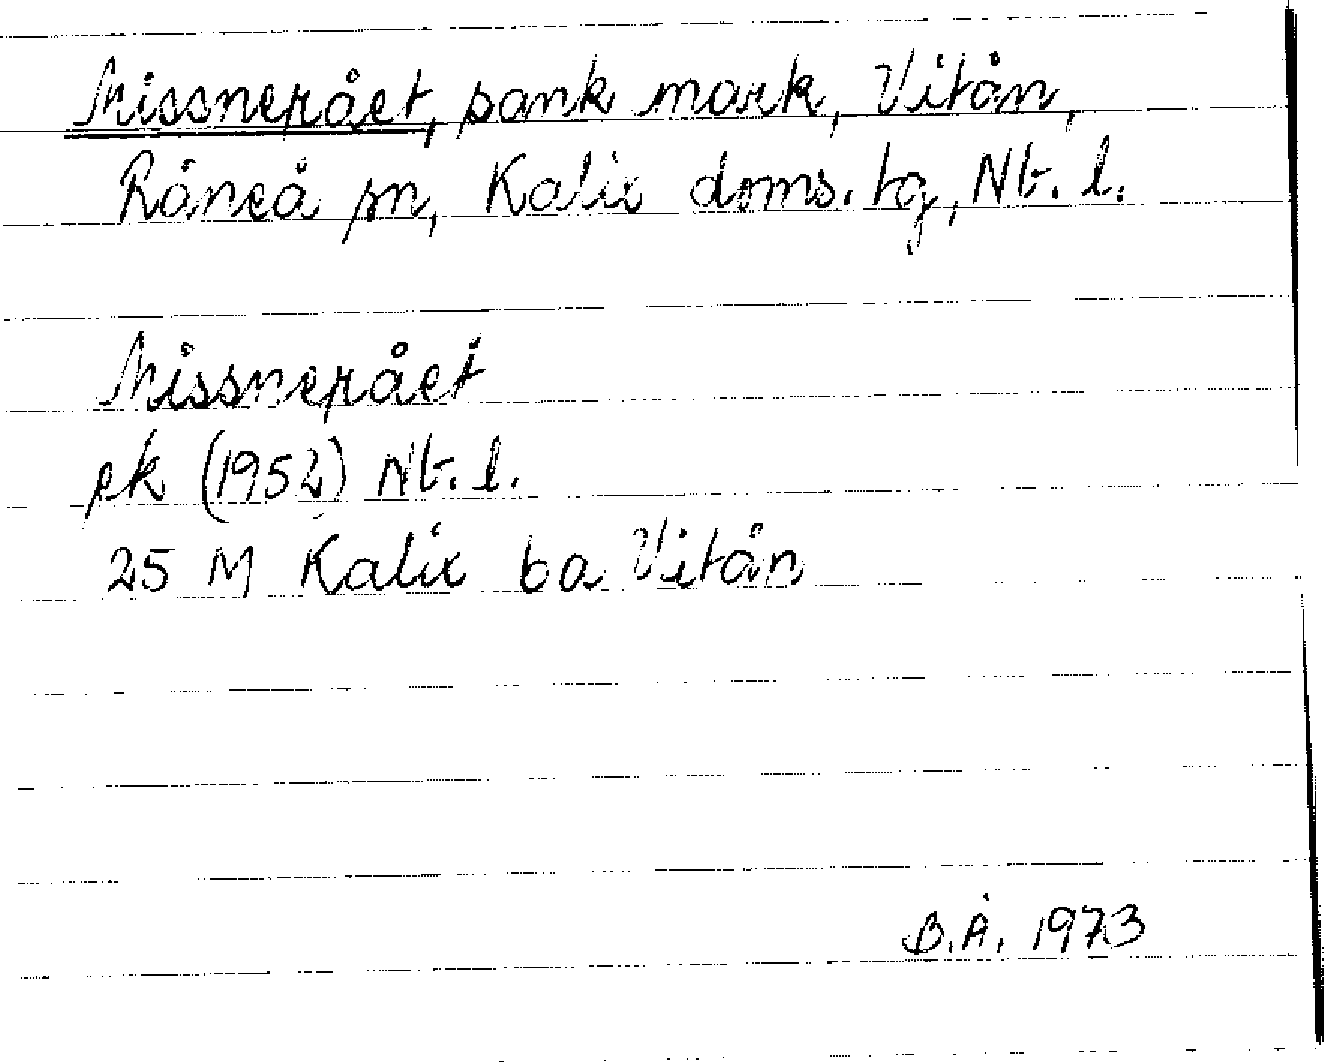 Missnepået, sank mark, Vitån,
Råneå sn, Kalix doms. tg, Nb. l.
Missnepået
ek (1952) Nb. l.
25 M Kalix ba Vitån
B.Å. 1973